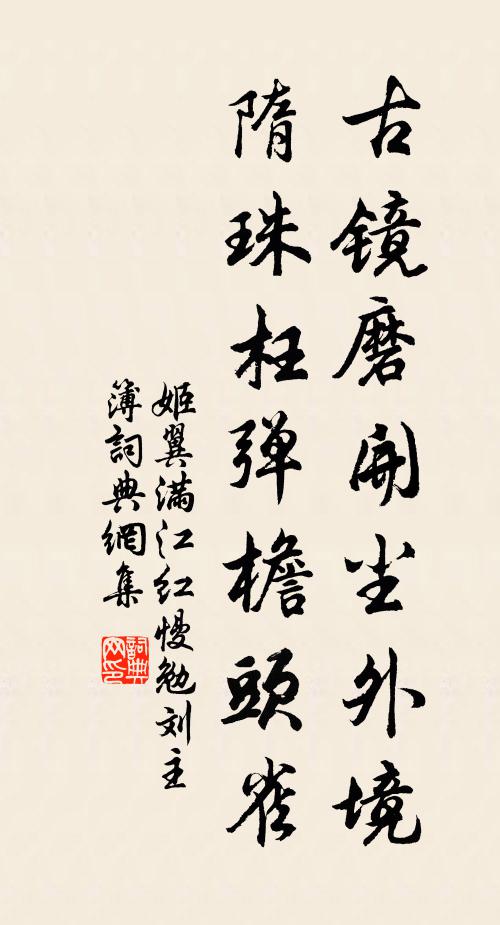 古镜磨開尘外境
隋珠枉弹檐頭雀
姬翼满江红慢勉刘主
簿詞典網集
詞典网印